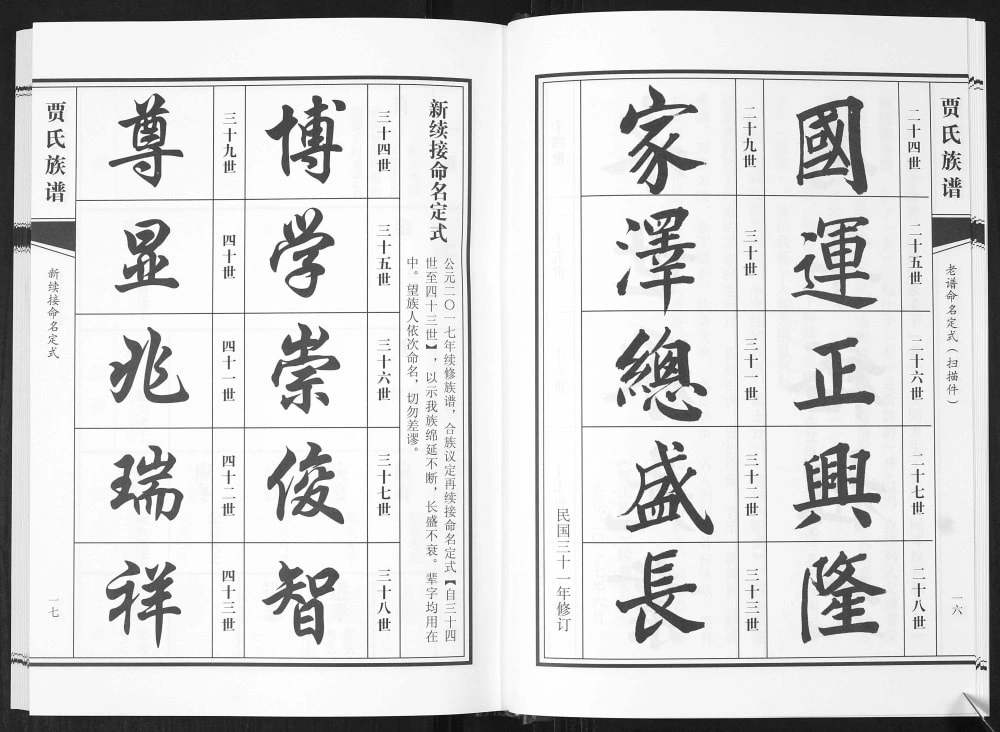 贾氏族谱
老谱命名定式（扫描件）
一六
二十四世
國
二十五世
運
二十六世
正
二十七世
興
二十八世
隆
二十九世
家
三十世
澤
三十一世
總
三十二世
盛
三十三世
長
民国三十一年修订
新续接命名定式
公元二〇一七年续修族谱，合族议定再续接命名定式【自三十四
世至四十三世】，以示我族绵延不断，长盛不衰。辈字均用在
中。望族人依次命名，切勿差谬。
三十四世
博
三十五世
学
三十六世
崇
三十七世
俊
三十八世
智
三十九世
尊
四十世
显
四十一世
兆
四十二世
瑞
四十三世
祥
贾氏族谱
新续接命名定式
一七